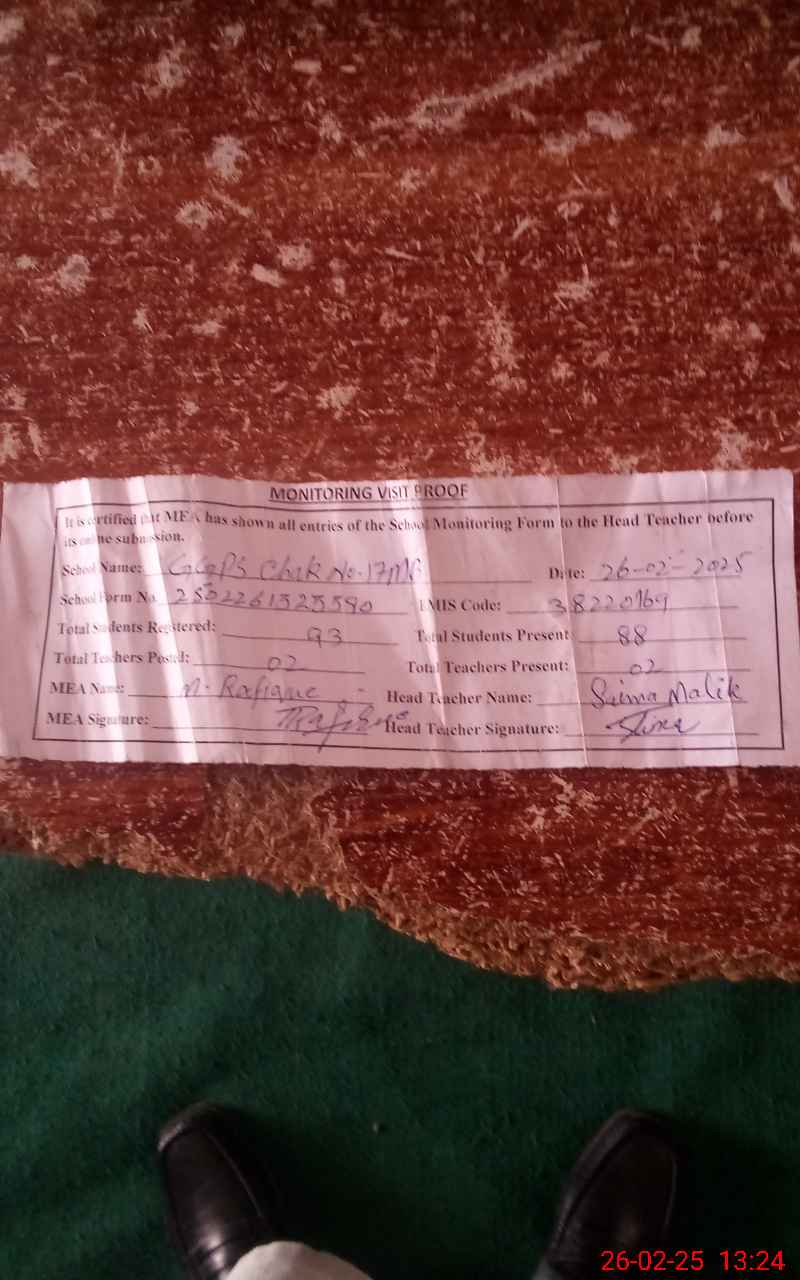 MONITORING VISIT PROOF
It is certified that MEA has shown all entries of the School Monitoring Form to the Head Teacher before
its online submission.
School Name: GGPS Chak No. 17MG Date: 26-02-2025
School Form No. EMIS Code: 38220169
Total Students Registered: 93 Total Students Present: 88
Total Teachers Posted: 02 Total Teachers Present: 02
MEA Name: M. Rafique Head Teacher Name: Sima Malik
MEA Signature: Head Teacher Signature: Sima
26-02-25 13:24